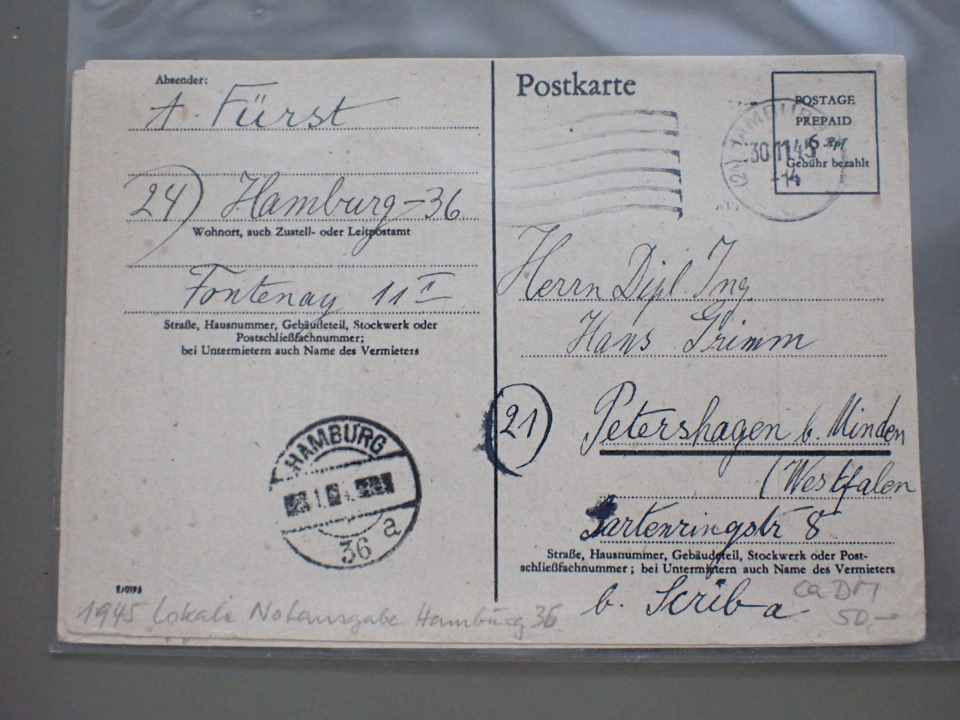 Absender:
A. Fürst
24) Hamburg-36
Wohnort, auch Zustell- oder Leitpostamt
Fontenay 11 I
Straße, Hausnummer, Gebäudeteil, Stockwerk oder
Postschließfachnummer;
bei Untermietern auch Name des Vermieters
HAMBURG
36 a
1945 Lokale Notausgabe Hamburg 36
Postkarte
POSTAGE
PREPAID
6 Rpf
Gebühr bezahlt
(24) HAMBURG
30.11.45
-14
Herrn Dipl. Ing.
Hans Grimm
21 Petershagen b. Minden
(Westfalen
Gartenringstr 8
Straße, Hausnummer, Gebäudeteil, Stockwerk oder Post-
schließfachnummer; bei Untermietern auch Name des Vermieters
b. Scriba
ca DM
50,-